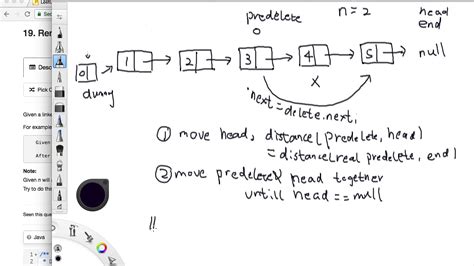 19. Rem
predelete
n = 2
head
end
0
1
2
3
4
5
null
dummy
x
next = delete.next;
① move head, distance(predelete, head)
= distance(real predelete, end)
② move predelete & head together
untill head == null
Pick O
Given a linke
For example
Given
After
Note:
Given n will a
Try to do this
Seen this que
Java